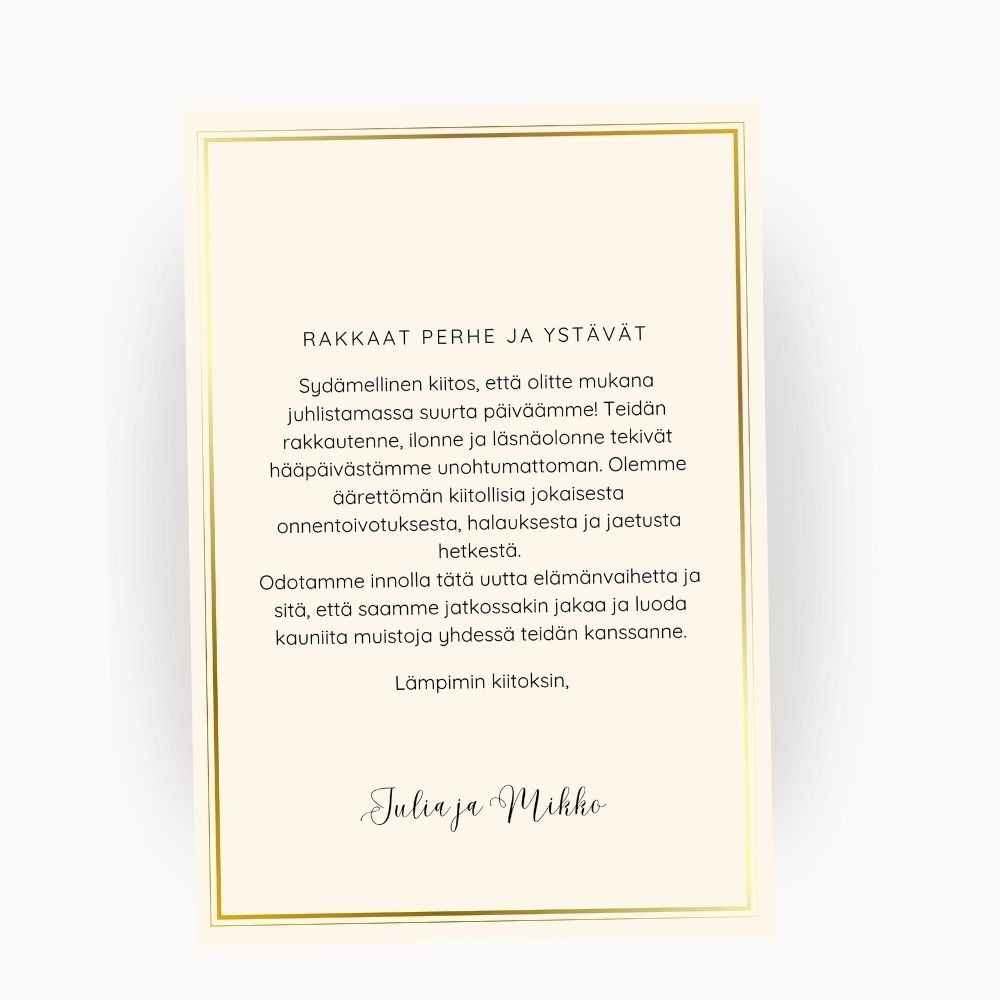 RAKKAAT PERHE JA YSTÄVÄT
Sydämellinen kiitos, että olitte mukana
juhlistamassa suurta päiväämme! Teidän
rakkautenne, ilonne ja läsnäolonne tekivät
hääpäivästämme unohtumattoman. Olemme
äärettömän kiitollisia jokaisesta
onnentoivotuksesta, halauksesta ja jaetusta
hetkestä.
Odotamme innolla tätä uutta elämänvaihetta ja
sitä, että saamme jatkossakin jakaa ja luoda
kauniita muistoja yhdessä teidän kanssanne.
Lämpimin kiitoksin,
Julia ja Mikko